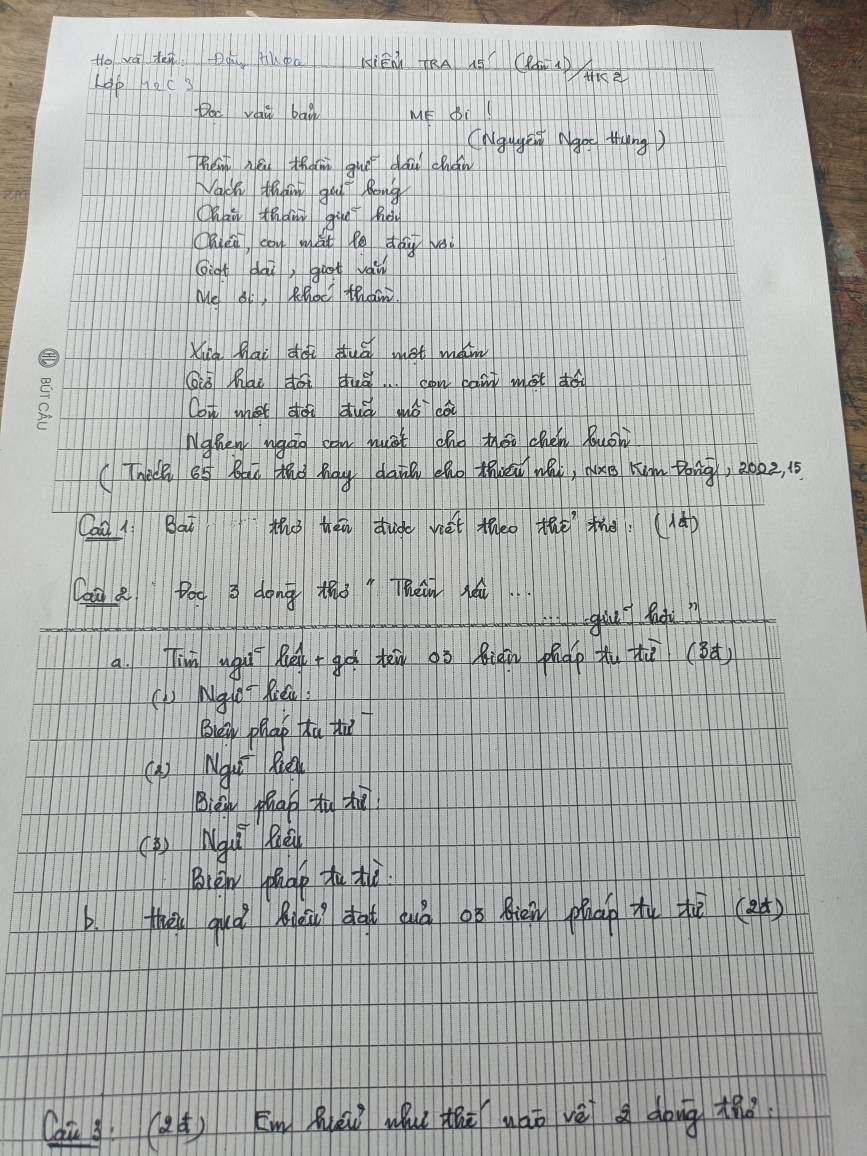 Họ và tên: Đăng Khoa KIỂM TRA 15' (lần 1)/HK2
Lớp
Đọc văn bản MẸ ơi !
(Nguyễn Ngọc Hưng)
Thềm rêu thầm giữ dấu chân
Vách thầm giữ bóng
Chăn thầm giữ hơi
Chiều, con mắt lo đầy vơi
Giọt dài, giọt vắn
Mẹ ơi, khóc thầm.
Xưa hai đôi đũa một mâm
Giờ hai đôi đũa... con cầm một đôi
Còn một đôi đũa mồ côi
Nghẹn ngào con nuốt cho trôi chén buồn
(Trích 65 bài thơ hay dành cho thiếu nhi, NXB Kim Đồng, 2002, 15
Câu 1: Bài thơ trên được viết theo thể thơ: (1đ)
Câu 2: Đọc 3 dòng thơ "Thềm rêu ...
... giữ hơi"
a. Tìm ngữ liệu + gọi tên 03 biện pháp tu từ (3đ)
(1) Ngữ liệu:
Biện pháp tu từ
(2) Ngữ liệu
Biện pháp tu từ:
(3) Ngữ liệu
Biện pháp tu từ:
b. Hiệu quả biểu đạt của 03 biện pháp tu từ (2đ)
Câu 3: (2đ) Em hiểu như thế nào về 2 dòng thơ:
BÚT CÂU